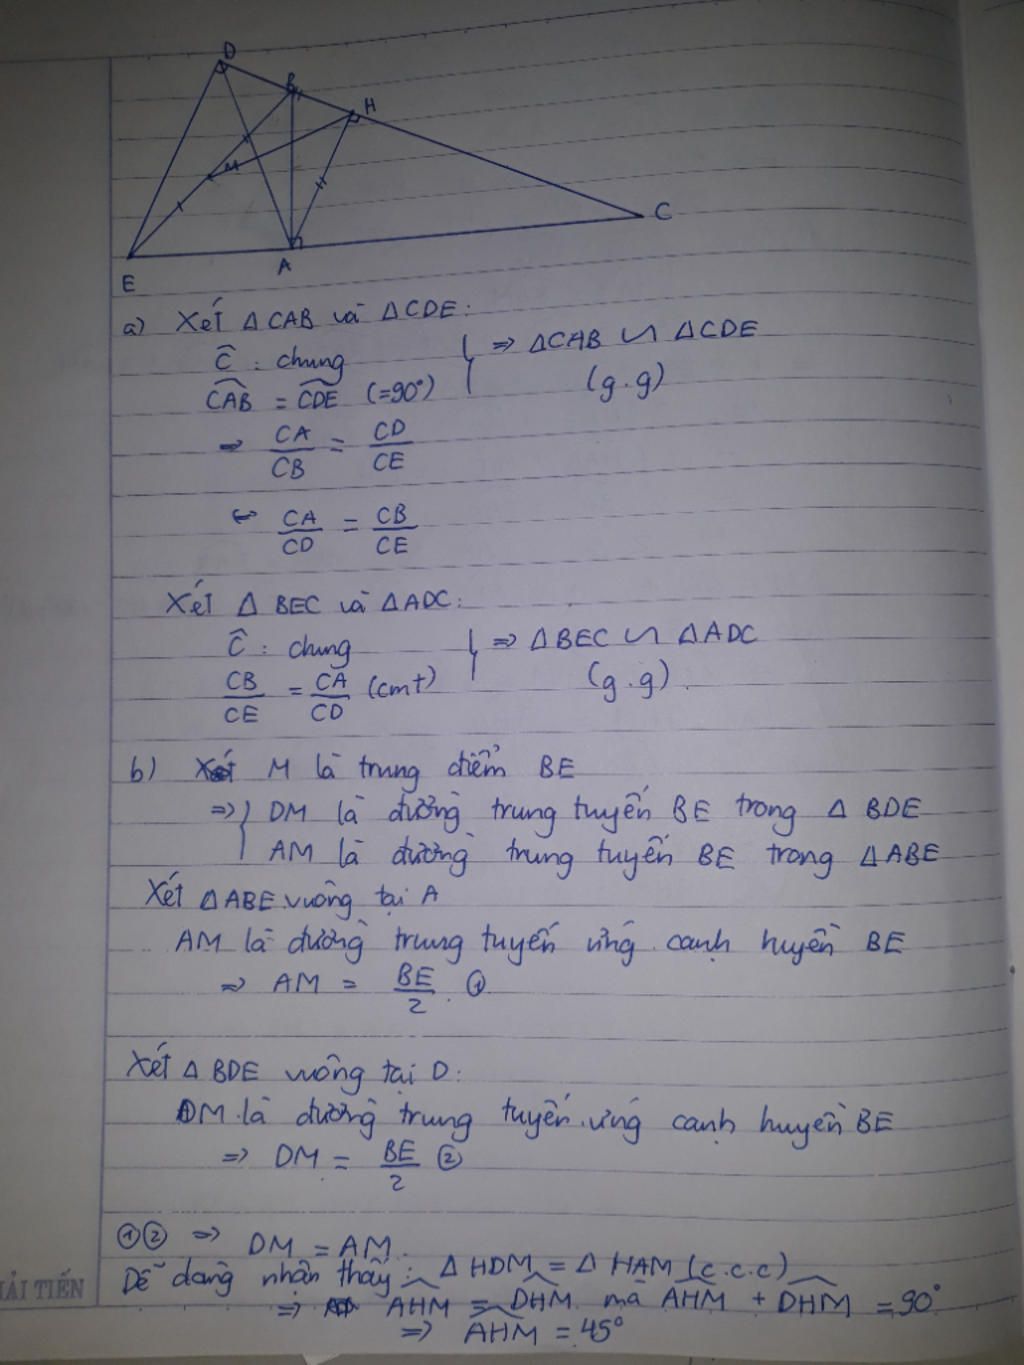 D
B
H
M
C
E
A
a) Xét Δ CAB và Δ CDE:
Ĉ : chung
⇒ ΔCAB ∽ ΔCDE
CAB = CDE (=90°)
(g.g)
⇒ CA/CB = CD/CE
⇔ CA/CD = CB/CE
Xét Δ BEC và ΔADC:
Ĉ : chung
⇒ ΔBEC ∽ ΔADC
CB/CE = CA/CD (cmt)
(g.g).
b) M là trung điểm BE
⇒ DM là đường trung tuyến BE trong Δ BDE
AM là đường trung tuyến BE trong ΔABE
Xét ΔABE vuông tại A
AM là đường trung tuyến ứng cạnh huyền BE
⇒ AM = BE/2 ①
Xét Δ BDE vuông tại D:
DM là đường trung tuyến ứng cạnh huyền BE
⇒ DM = BE/2 ②
①② ⇒ DM = AM.
Dễ dàng nhận thấy: Δ HDM = Δ HAM (c.c.c)
⇒ AHM = DHM mà AHM + DHM = 90°
⇒ AHM = 45°
HẢI TIẾN